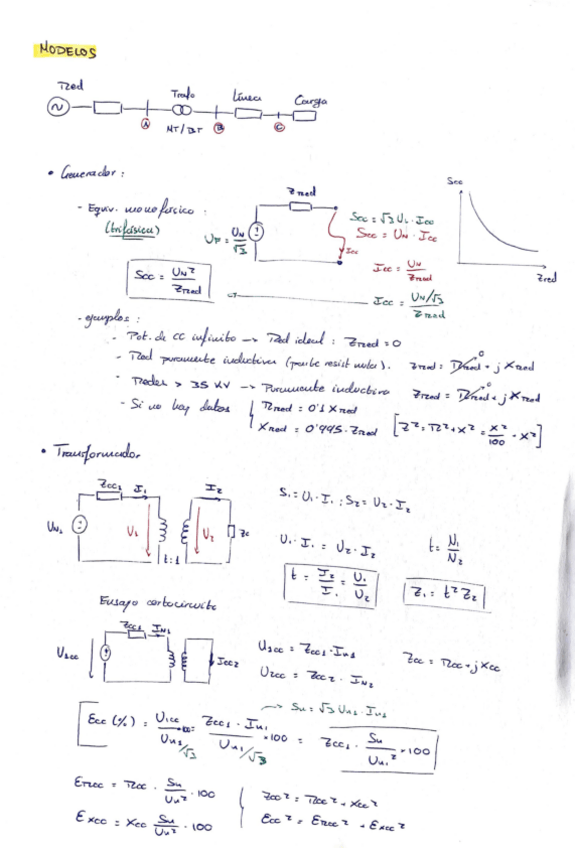 MODELOS
Red Trafo Línea Carga
A MT/BT B C
• Generador:
- Equiv. monofásico:
(trifásica)
Zred
U_F = U_N/√3
Icc
Scc = √3 U_L · Icc
Scc = U_N · Icc
Icc = U_N/Zred
Icc = (U_N/√3)/Zred
Scc
Zred
Scc = U_N²/Zred
- ejemplos:
- Pot. de CC infinito → Red ideal: Zred = 0
- Red puramente inductiva (parte resist nula). Zred = Rred⁰ + j Xred
- Redes > 35 KV → Puramente inductiva Zred = Rred⁰ + j Xred
- Si no hay datos { Rred = 0'1 Xred
Xred = 0'995 · Zred [Z² = R² + X² = X²/100 + X²]
• Transformador
Zcc1 I1 I2
U_N1 U1 U2 Zc
t:1
S1 = U1 · I1 ; S2 = U2 · I2
U1 · I1 = U2 · I2 t = N1/N2
t = I2/I1 = U1/U2 Z1 = t² Z2
Ensayo cortocircuito
Zcc1 I_N1
U1cc Icc2
U1cc = Zcc1 · I_N1 Zcc = Rcc + j Xcc
U2cc = Zcc2 · I_N2
→ Sn = √3 Un1 · In1
Ecc (%) = U1cc/(Un1/√3) · 100 = Zcc1 · In1/(Un1/√3) · 100 = Zcc1 · Sn/Un1² · 100
ERcc = Rcc · Sn/Un² · 100 Zcc² = Rcc² + Xcc²
EXcc = Xcc Sn/Un² · 100 Ecc² = ERcc² + EXcc²